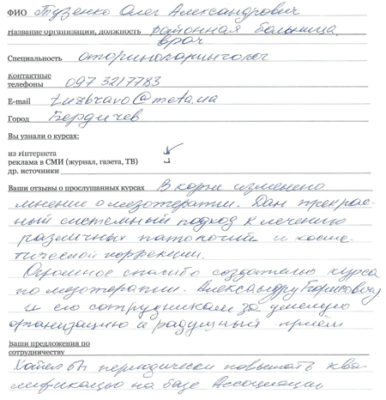 ФИО Тузенко Олег Александрович
Название организации, должность районная больница
врач
Специальность оториноларинголог
Контактные
телефоны 097 3217783
E-mail @meta.ua
Город Бердичев
Вы узнали о курсах:
из интернета
реклама в СМИ (журнал, газета, ТВ)
др. источники
Ваши отзывы о прослушанных курсах В корни изменено
мнение о мезотерапии. Дан прекрас-
ный системный подход к лечению
различных патологий и косме-
тической коррекции.
Огромное спасибо создателю курса
по мезотерапии. Александру Борисовичу
и его сотрудникам за умелую
организацию и радушный приём
Ваши предложения по
сотрудничеству
Хотел бы периодически повышать ква-
лификацию на базе Ассоциации